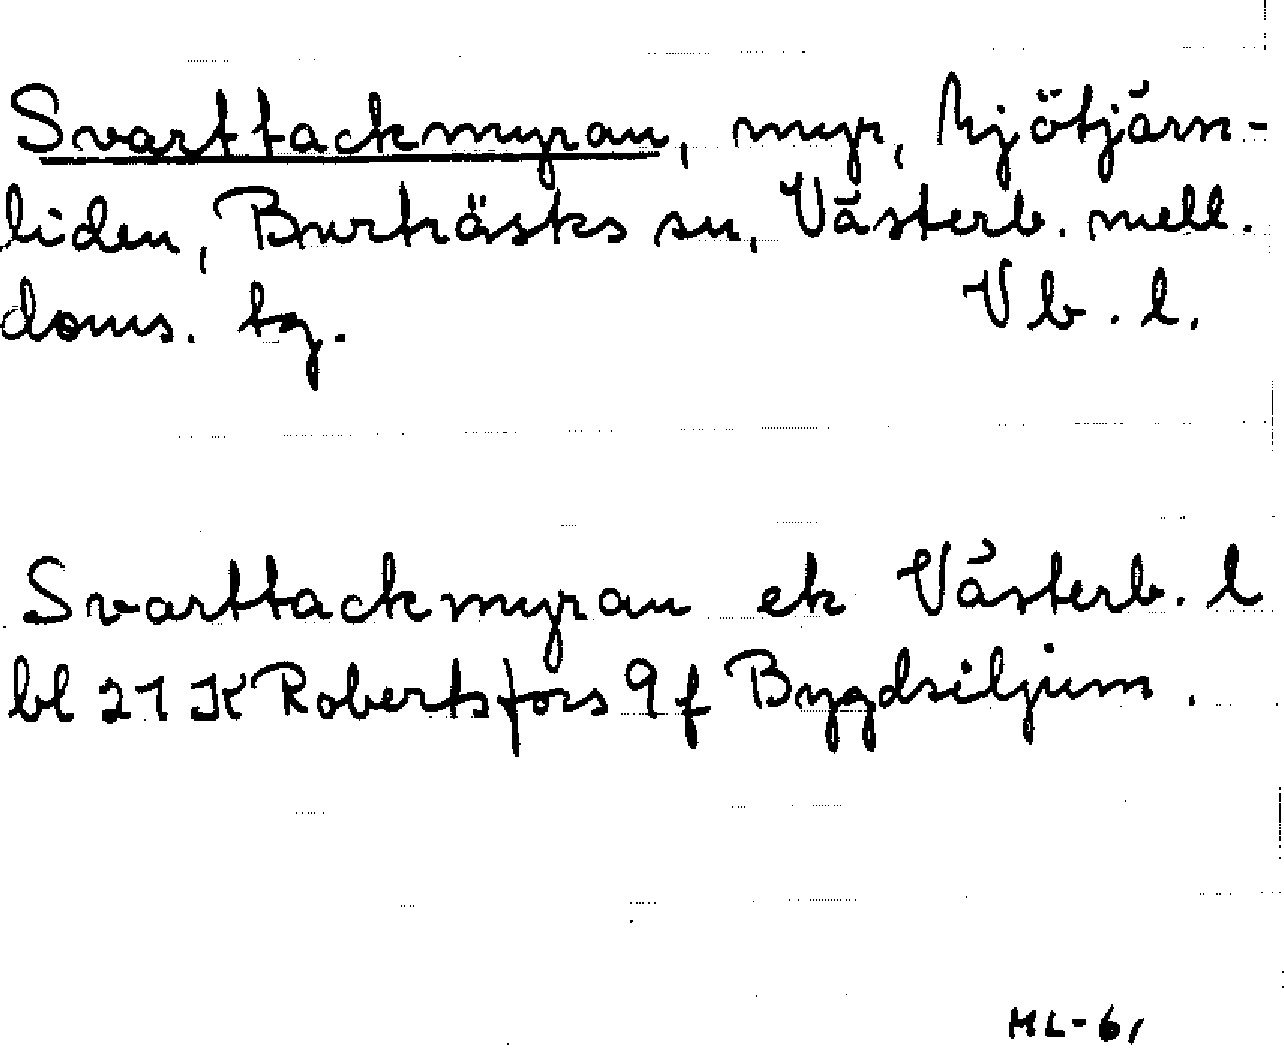 Svarttackmyran, myr, Mjötjärn-
liden, Burträsks sn, Västerb. mell.
doms. tg. Vb. l.
Svarttackmyran ek Västerb. l
bl 21 K Robertsfors 9 f Bygdsiljum.
HL-61